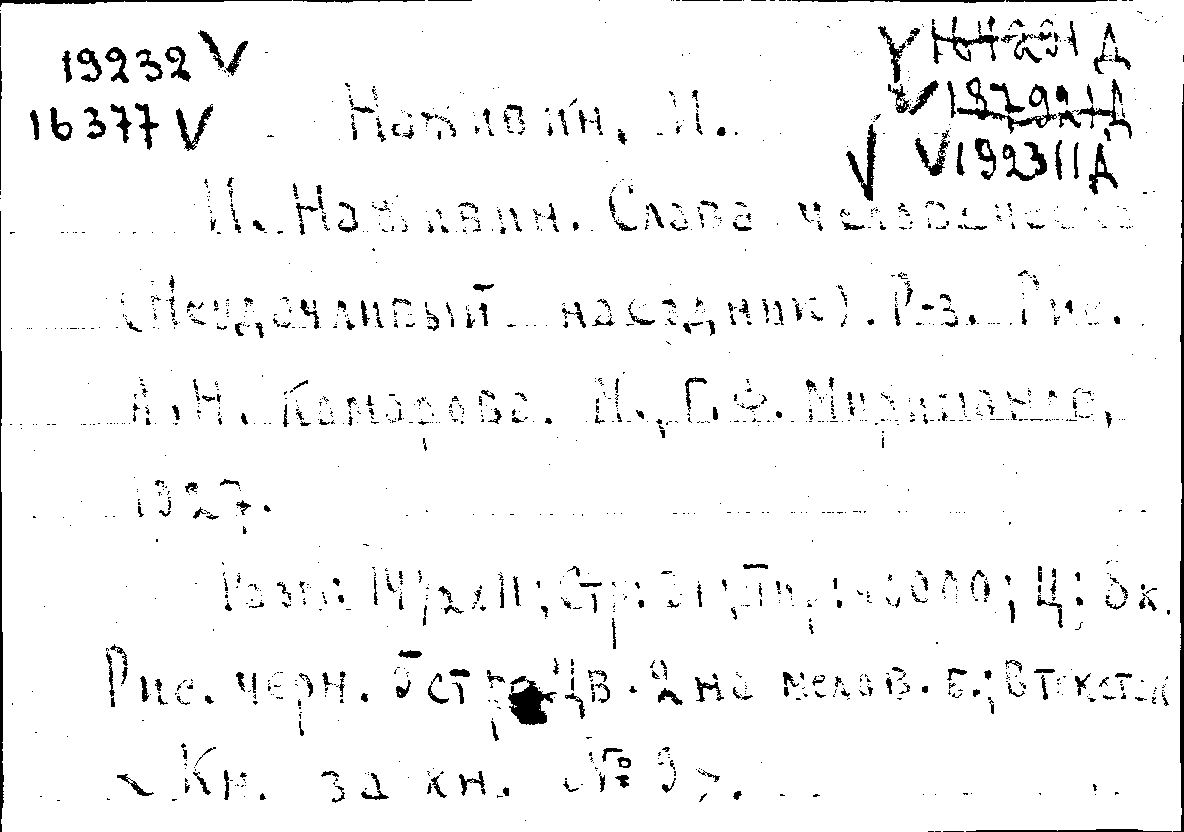 19232 V
16377 V
187921Д
V 192311Д
Наживин, И.
И. Наживин. Слава человеческа
(Неудачливый наездник). Р-з. Рис.
А.Н. Комарова. М., Г.Ф. Мириманов,
1927.
Разм: 14½x11; Стр: 31; Тир: ; Ц: 8к.
Рис. черн. 5 стр Цв. 2 на мелов. б.; В тексте
<Кн. за кн. № 9>.